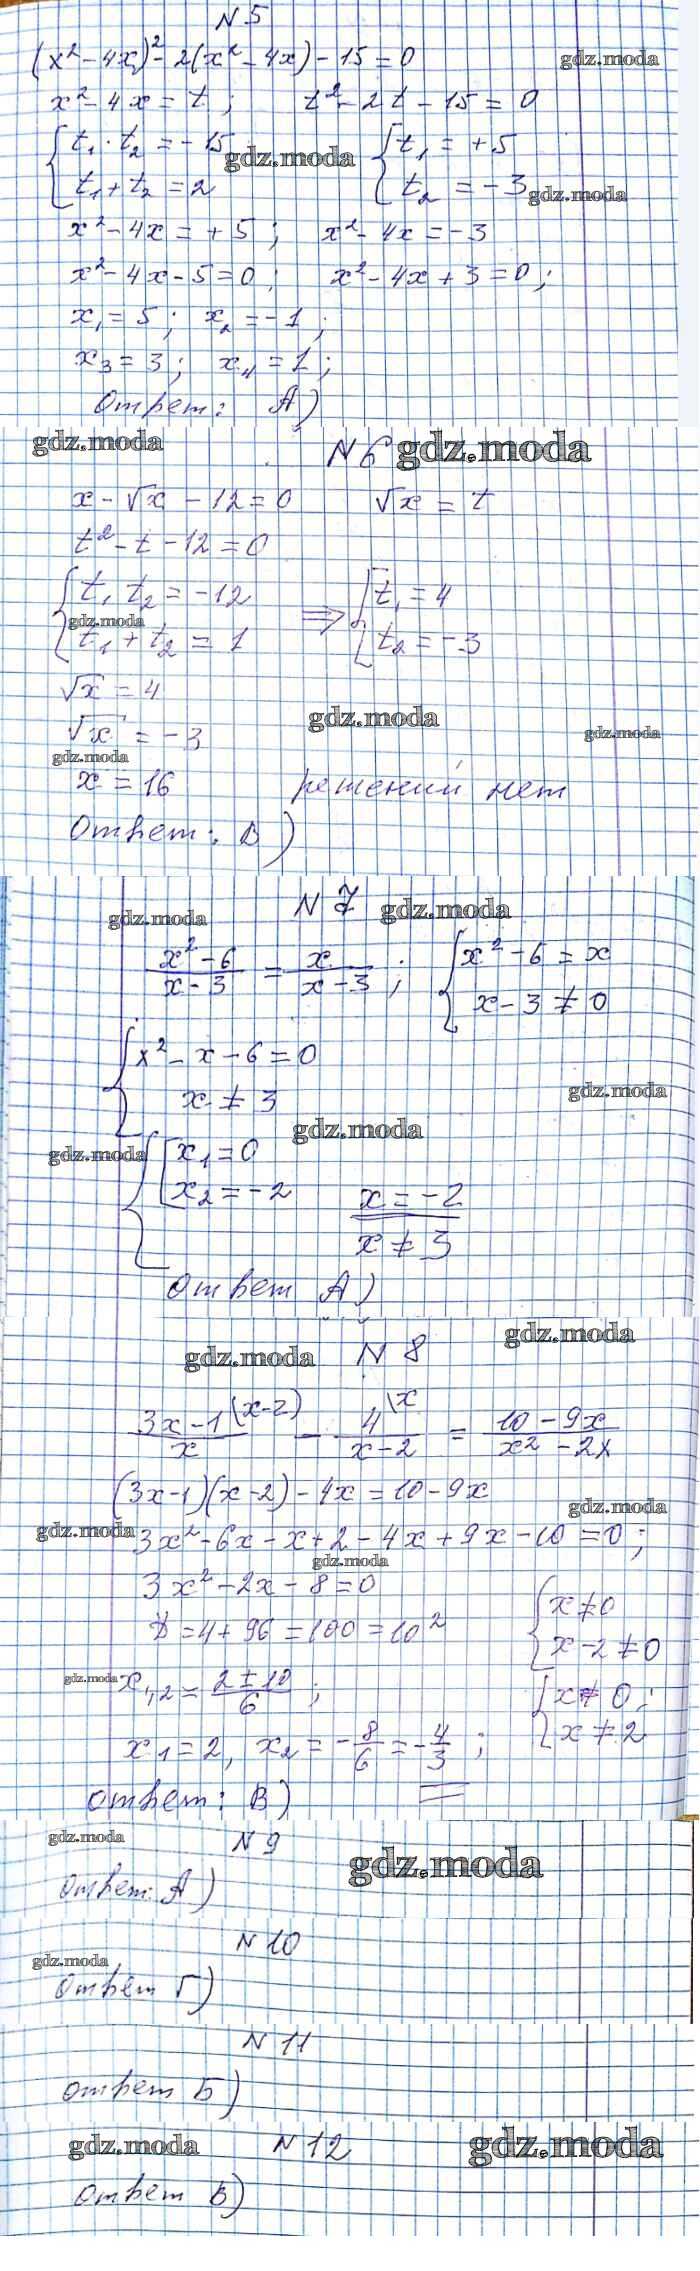 N 5
(x² - 4x)² - 2(x² - 4x) - 15 = 0
gdz.moda
x² - 4x = t; t² - 2t - 15 = 0
{ t₁ · t₂ = -15 { t₁ = +5
gdz.moda
t₁ + t₂ = 2 t₂ = -3
gdz.moda
x² - 4x = +5; x² - 4x = -3
x² - 4x - 5 = 0; x² - 4x + 3 = 0;
x₁ = 5; x₂ = -1;
x₃ = 3; x₄ = 1;
Ответ: А)
gdz.moda N 6 gdz.moda
x - √x - 12 = 0 √x = t
t² - t - 12 = 0
{ t₁ t₂ = -12 ⇒ { t₁ = 4
gdz.moda
t₁ + t₂ = 1 t₂ = -3
√x = 4
gdz.moda
√x = -3 gdz.moda
gdz.moda
x = 16 решений нет
Ответ: В)
gdz.moda N 7 gdz.moda
(x² - 6)/(x - 3) = x/(x - 3); { x² - 6 = x
x - 3 ≠ 0
{ x² - x - 6 = 0
x ≠ 3 gdz.moda
gdz.moda
gdz.moda { [ x₁ = 0
x₂ = -2 x = -2
x ≠ 3
Ответ А)
gdz.moda N 8 gdz.moda
(3x - 1)/x \(x-2) - 4/(x - 2) \x = (10 - 9x)/(x² - 2x)
(3x - 1)(x - 2) - 4x = 10 - 9x
gdz.moda
gdz.moda 3x² - 6x - x + 2 - 4x + 9x - 10 = 0;
gdz.moda
3x² - 2x - 8 = 0 { x ≠ 0
D = 4 + 96 = 100 = 10² x - 2 ≠ 0
gdz.moda x₁,₂ = (2 ± 10)/6; { x ≠ 0;
x₁ = 2, x₂ = -8/6 = -4/3; x ≠ 2
ответ: В)
gdz.moda N 9 gdz.moda
ответ: А)
N 10
gdz.moda
ответ Г)
N 11
ответ Б)
gdz.moda N 12 gdz.moda
ответ Б)